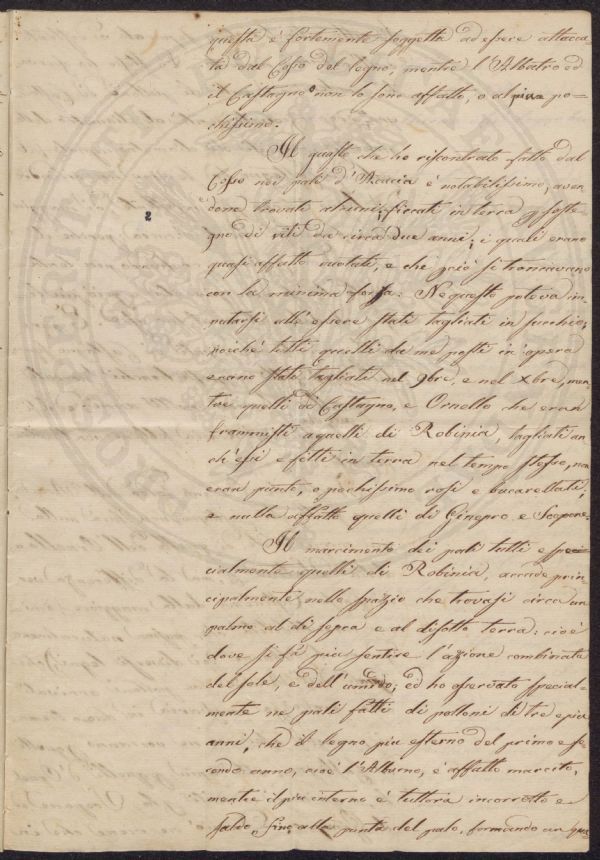 questa è fortemente soggetta ad essere attacca-
ta dal Cosso del legno, mentre l'Albatro ed
il Castagno non lo sono affatto, o al più po-
chissimo.
Il guasto che ho riscontrato fatto dal
Cosso nei pali d'Acacia è notabilissimo, aven
done trovati alcuni, ficcati in terra p soste-
gno di viti da circa due anni, i quali erano
quasi affatto vuotati, e che perciò si troncavano
con la minima forza. Ne questo poteva im-
putarsi all'essere stati tagliati in succhio,
poiché tutti quelli da me posti in opera
erano stati tagliati nel 9bre, e nel Xbre, men
tre quelli di Castagno, e Ornello che eran
frammisti a quelli di Robinia, tagliati an
ch'essi e fitti in terra nel tempo stesso, non
eran punto, o pochissimo rosi e bucarellati,
e nulla affatto quelli di Ginepro e Scopone.
Il marcimento dei pali tutti e spe-
cialmente quelli di Robinia, accade prin
cipalmente nello spazio che trovasi circa un
palmo al di sopra e al disotto terra: cioè
dove si fà piu sentire l'azione combinata
del sole, e dell'umido; ed ho osservato special-
mente ne pali fatti di polloni di tre e piu
anni, che il legno piu esterno del primo e se
condo anno, cioè l'Alburno, è affatto marcito,
mentre il piu interno è tuttora incorrotto e
saldo, fino alla punta del palo, formando un